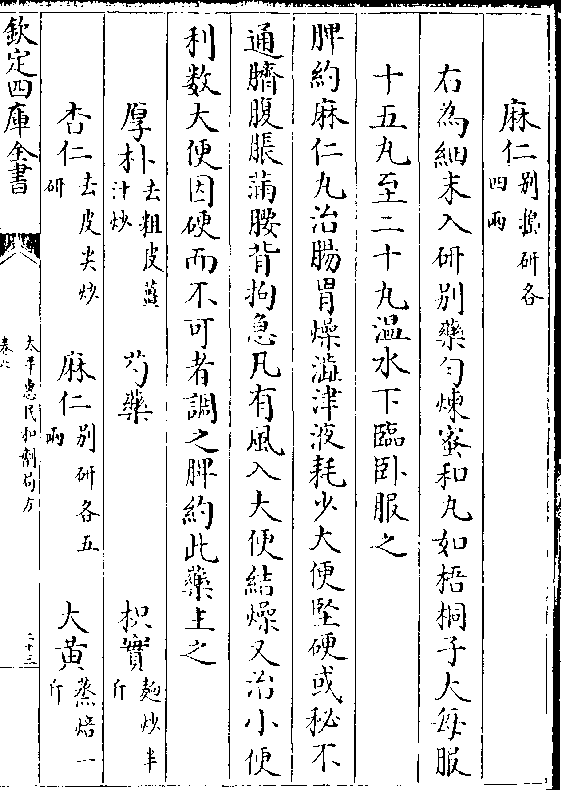 麻仁别搗研各四兩
右為細末入研别藥匀煉蜜和丸如梧桐子大每服
十五丸至二十丸温水下臨卧服之
脾約麻仁丸治腸胃燥澁津液耗少大便堅硬或秘不
通臍腹脹滿腰背拘急凡有風入大便結燥又治小便
利數大便因硬而不可者調之脾約此藥主之
厚朴去粗皮薑汁炒 芍藥 枳實麺炒半斤
杏仁去皮尖炒研 麻仁别研各五兩 大黄蒸焙一斤
欽定四庫全書
太平惠民和劑局方
二十三